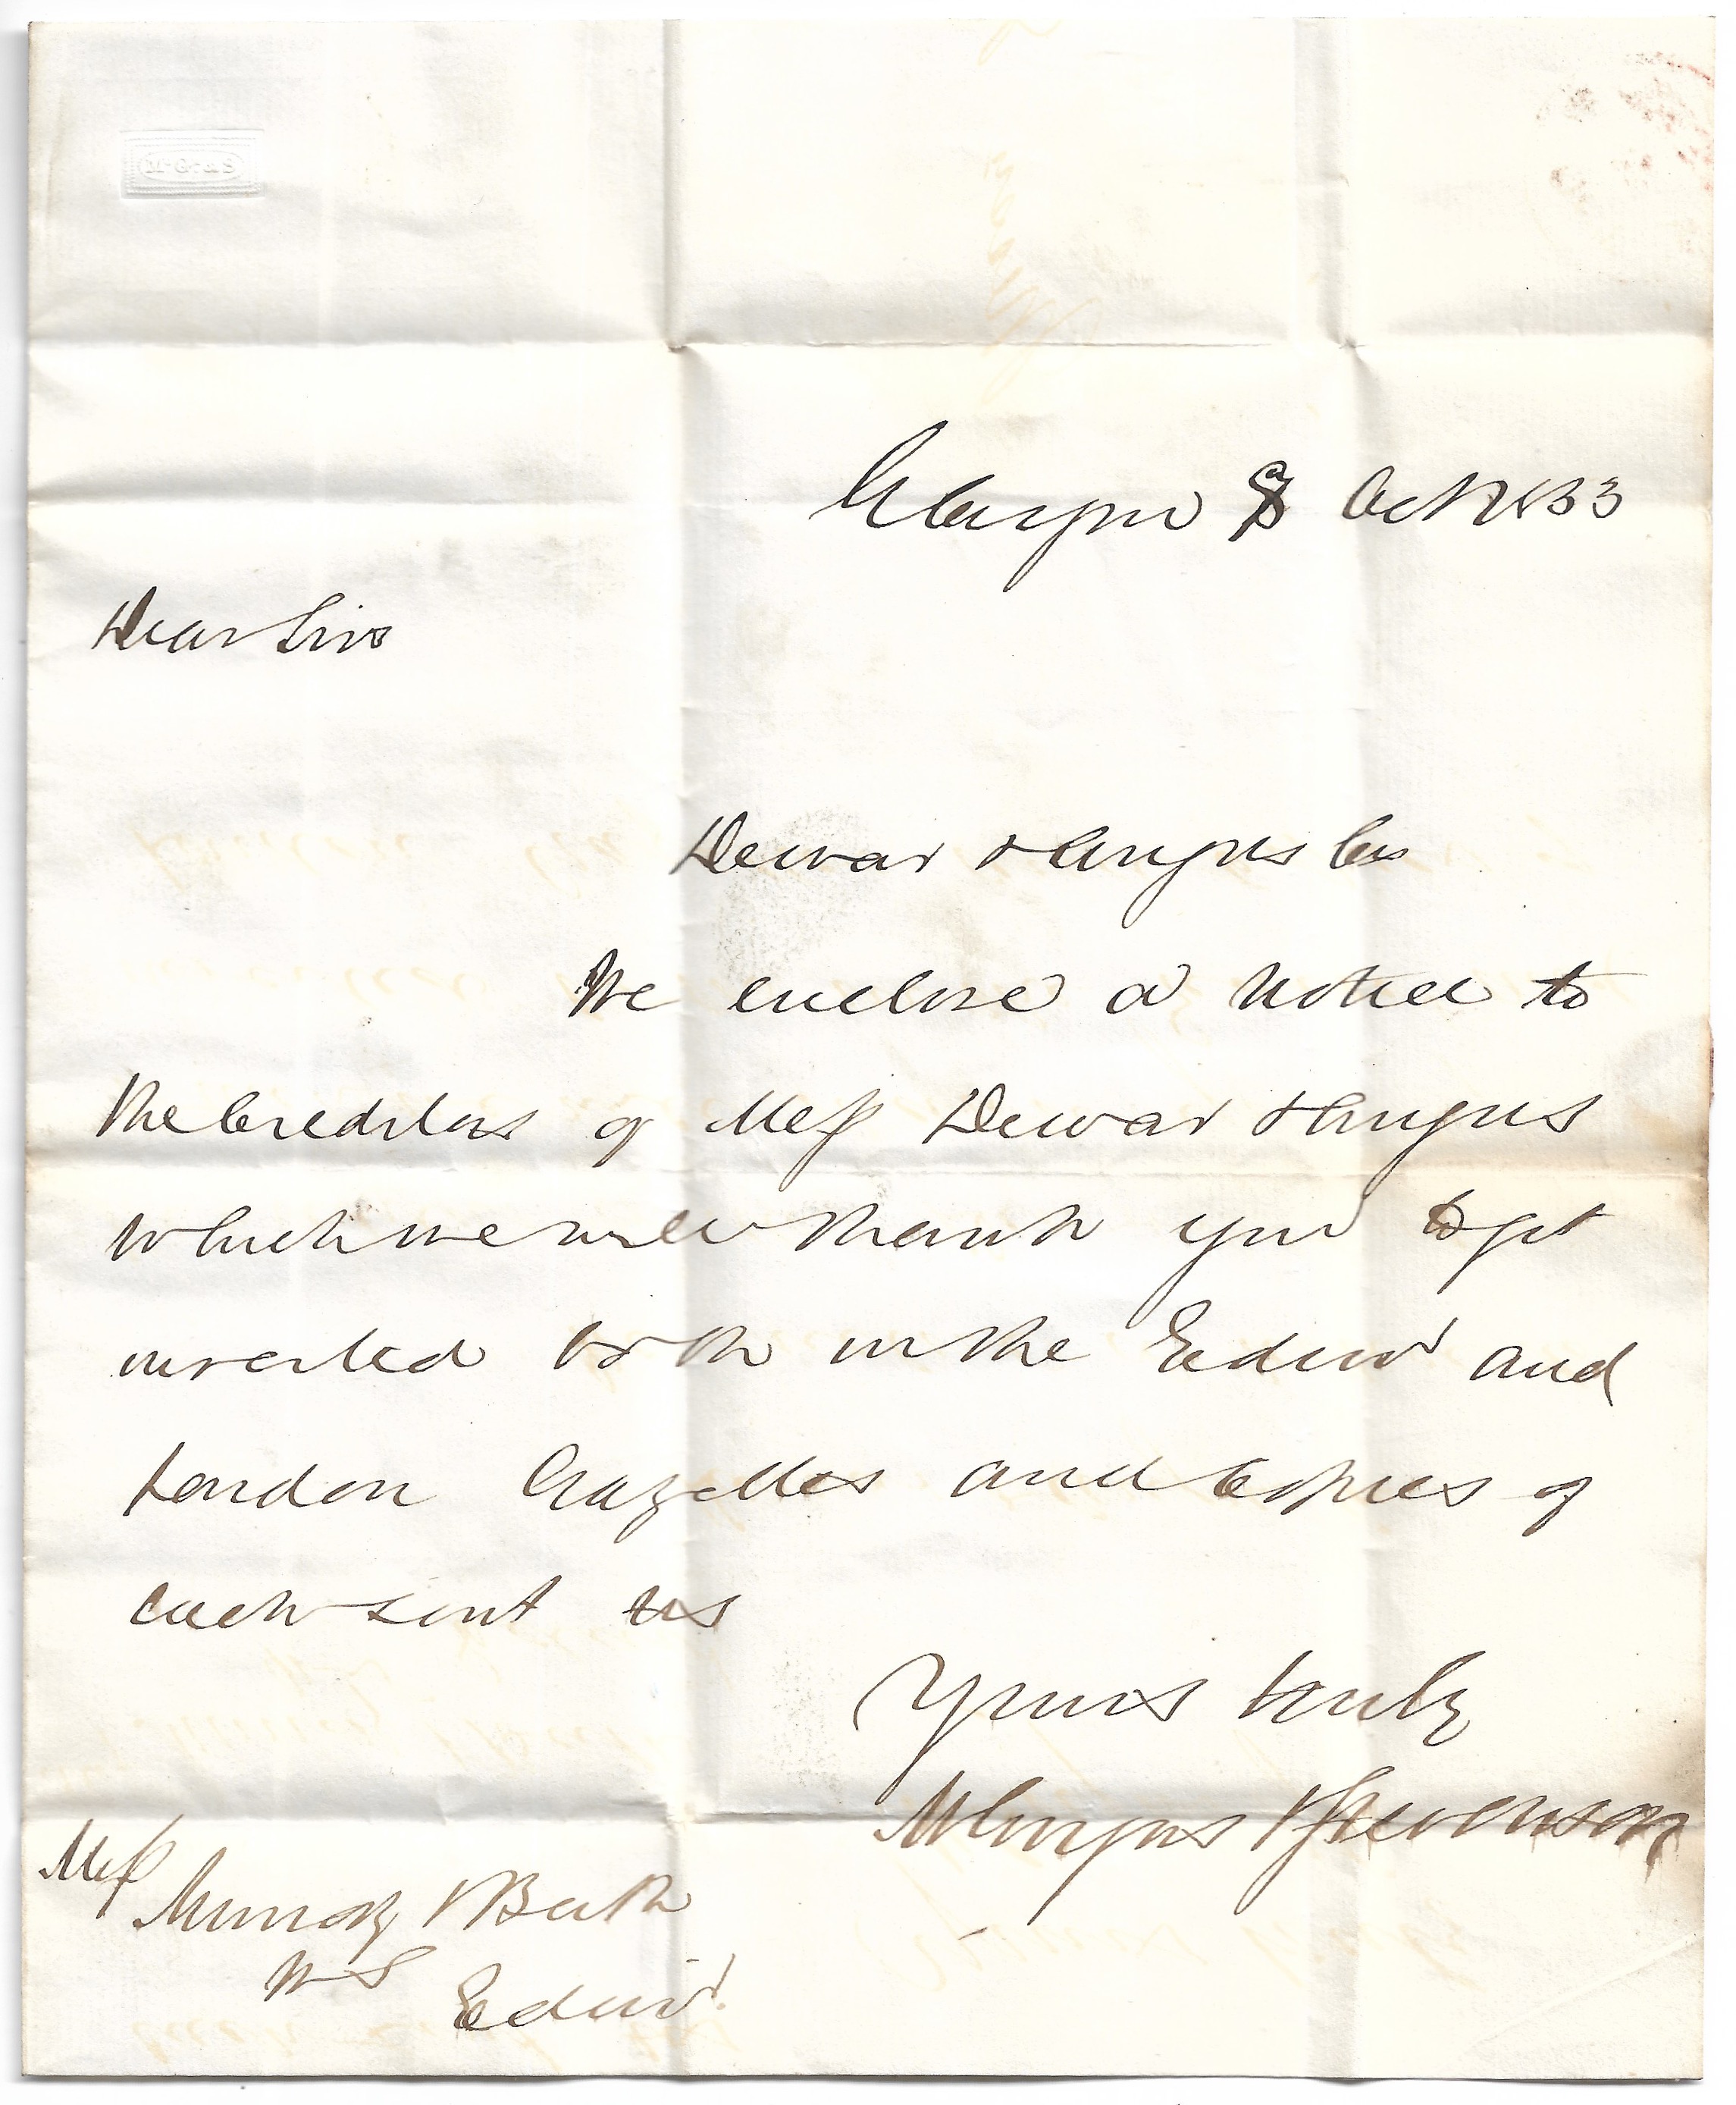 Glasgow 8 Oct 1853
Dear Sirs
Dewar & Angus
We enclose a notice to
the Creditors of Mess Dewar & Angus
which we will thank you to get
inserted both in the Edinr and
London Gazettes and Copies of
each sent us
Yours truly
Stevenson
Mess
Murray & Beith
WS
Edinr